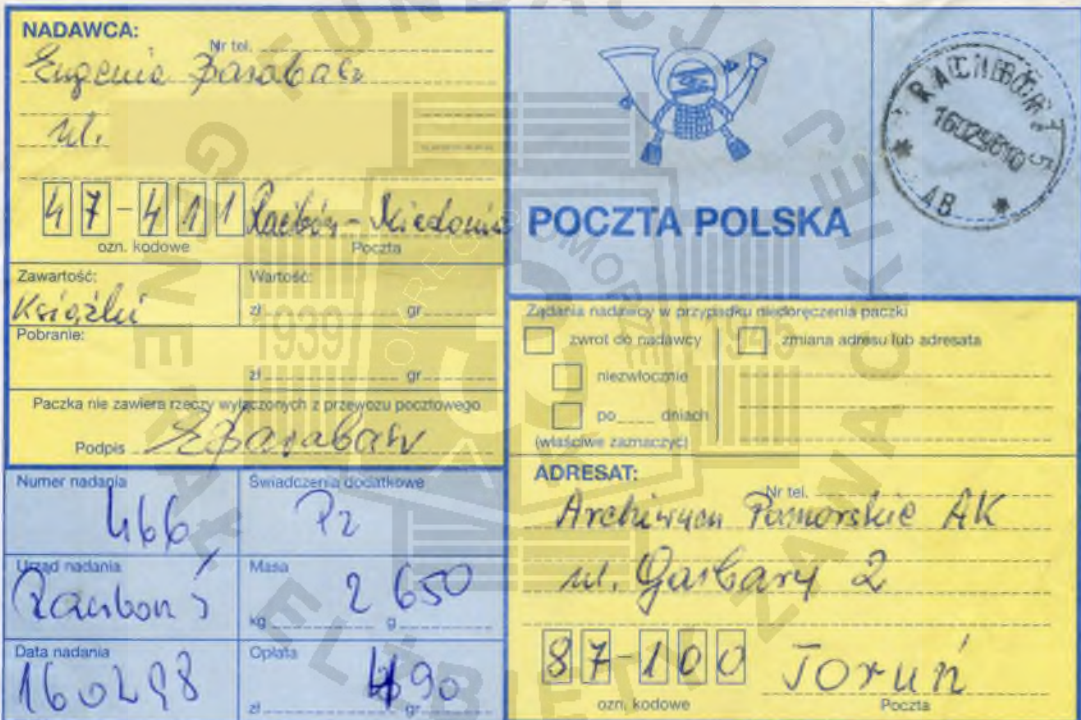 NADAWCA:
Nr tel.
Eugenia Barabasz
ul.
47-411 Racibórz-Miedonia
ozn. kodowe Poczta
Zawartość: Wartość:
Książki
zł gr
Pobranie:
zł gr
Paczka nie zawiera rzeczy wyłączonych z przewozu pocztowego
Podpis EBarabasz
Numer nadania Świadczenia dodatkowe
466 Pz
Urząd nadania Masa
Racibórz 5 2 650
kg g
Data nadania Opłata
160298 490
zł gr
POCZTA POLSKA
RACIBÓRZ 5
16029810
AB
Żądania nadawcy w przypadku niedoręczenia paczki
zwrot do nadawcy zmiana adresu lub adresata
niezwłocznie
po dniach
(właściwe zaznaczyć)
ADRESAT:
Nr tel.
Archiwum Pomorskie AK
ul. Garbary 2
87-100 Toruń
ozn. kodowe Poczta
FUNDACJA GENERAŁ ELŻBIETY ZAWACKIEJ
1939 1945